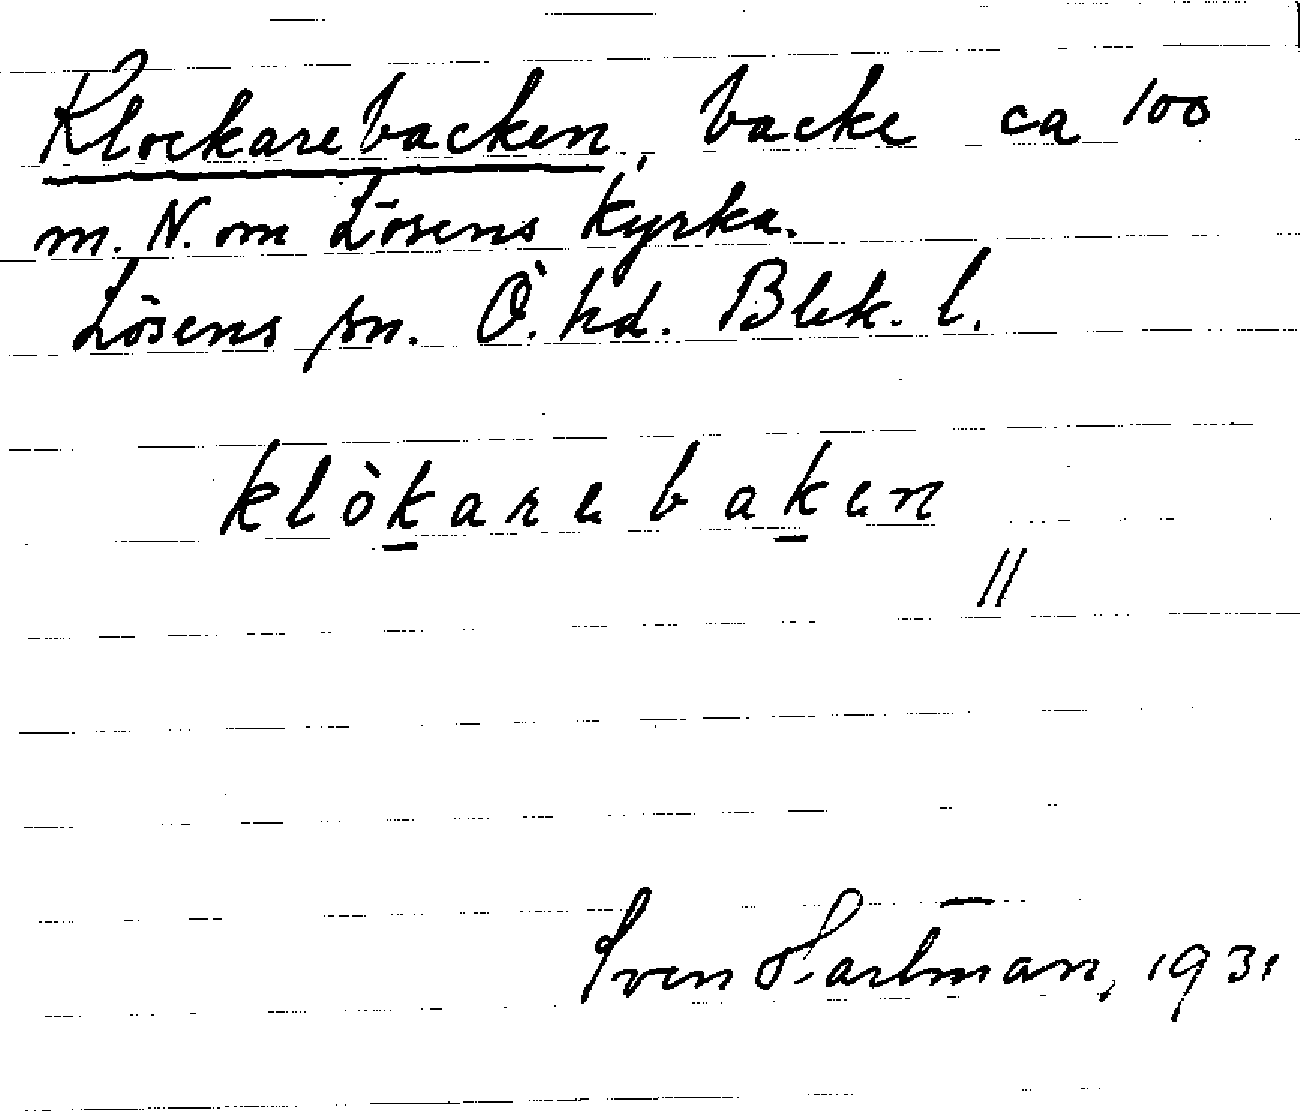 Klockarebacken, backe ca 100
m. N. om Lösens kyrka.
Lösens sn. Ö. hd. Blek. l.
klòkarebaken
//
Sven Hartman, 1931